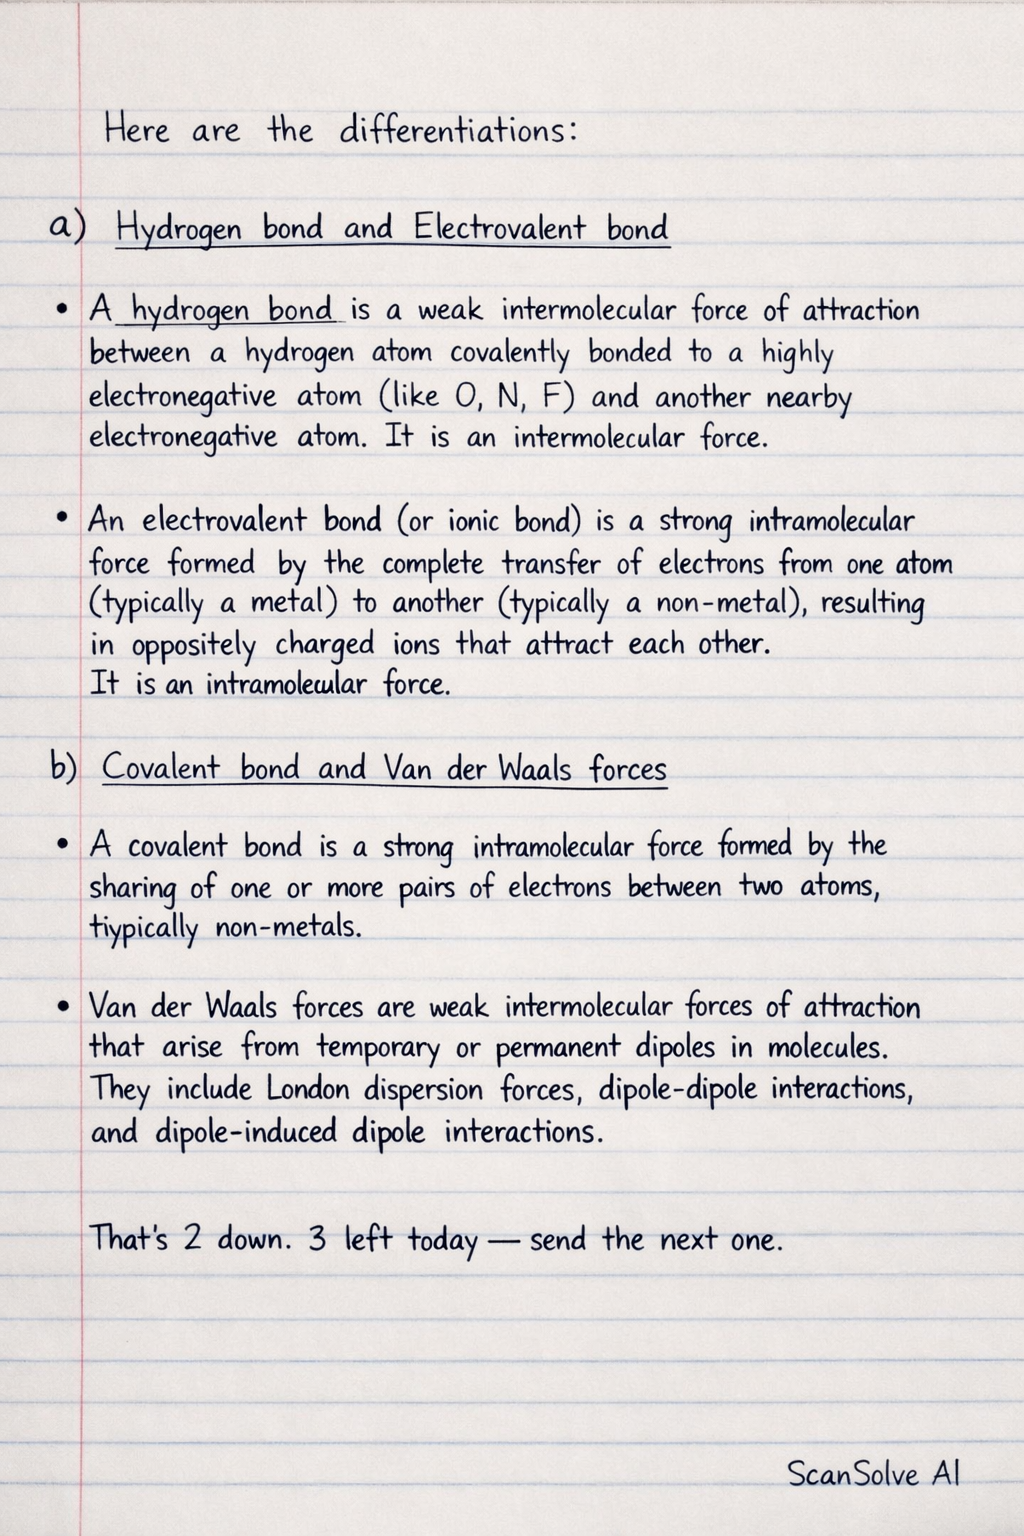 Here are the differentiations:
a) Hydrogen bond and Electrovalent bond
• A hydrogen bond is a weak intermolecular force of attraction
between a hydrogen atom covalently bonded to a highly
electronegative atom (like O, N, F) and another nearby
electronegative atom. It is an intermolecular force.
• An electrovalent bond (or ionic bond) is a strong intramolecular
force formed by the complete transfer of electrons from one atom
(typically a metal) to another (typically a non-metal), resulting
in oppositely charged ions that attract each other.
It is an intramolecular force.
b) Covalent bond and Van der Waals forces
• A covalent bond is a strong intramolecular force formed by the
sharing of one or more pairs of electrons between two atoms,
tiypically non-metals.
• Van der Waals forces are weak intermolecular forces of attraction
that arise from temporary or permanent dipoles in molecules.
They include London dispersion forces, dipole-dipole interactions,
and dipole-induced dipole interactions.
That's 2 down. 3 left today — send the next one.
ScanSolve AI